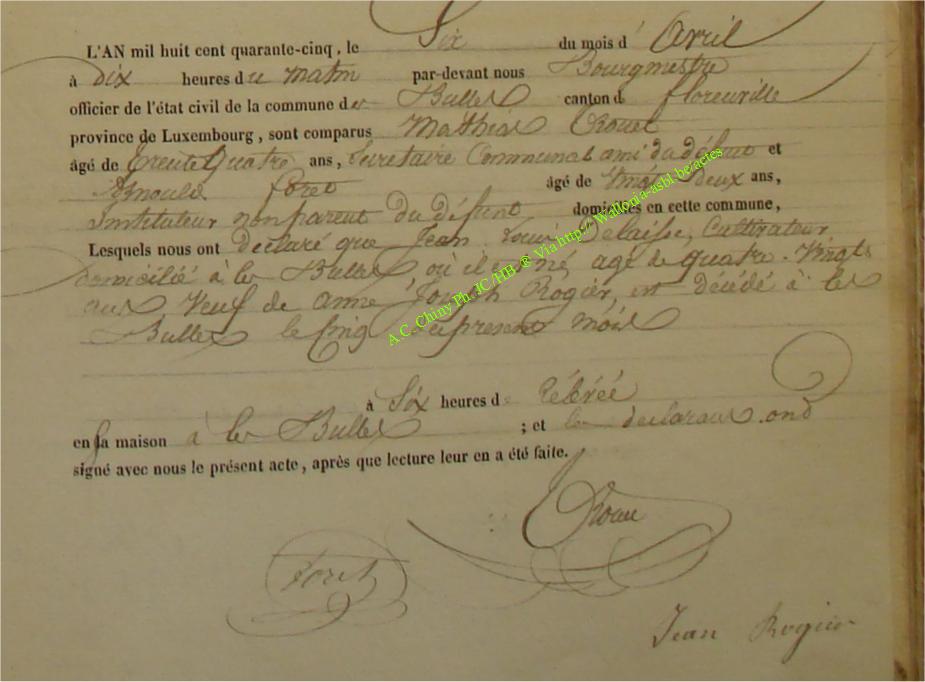 L'AN mil huit cent quarante-cinq, le Six du mois d' Avril
à dix heures du matin par-devant nous Bourgmestre
officier de l'état civil de la commune des Bulles canton de florenville
province de Luxembourg, sont comparus Mathias Rouel
âgé de trente quatre ans, Secretaire Communal ami du défunt et
Arnould foret âgé de vingt deux ans,
Instituteur non parent du défunt, domiciliés en cette commune,
Lesquels nous ont declaré que Jean Louis Delaisse, Cultivateur
domicilié à les Bulles où il est né, agé de quatre-Vingts
ans Veuf de anne Joseph Rogier, est décédé à les
Bulles le cinq du present mois
à Six heures de
en sa maison à les Bulles ; et les declarans ond
signé avec nous le présent acte, après que lecture leur en a été faite.
Rouel
Foret
Jean Rogier
A.C. Chiny Ph. JC/HB. ® Via http://Wallonia-asbl.be/actes